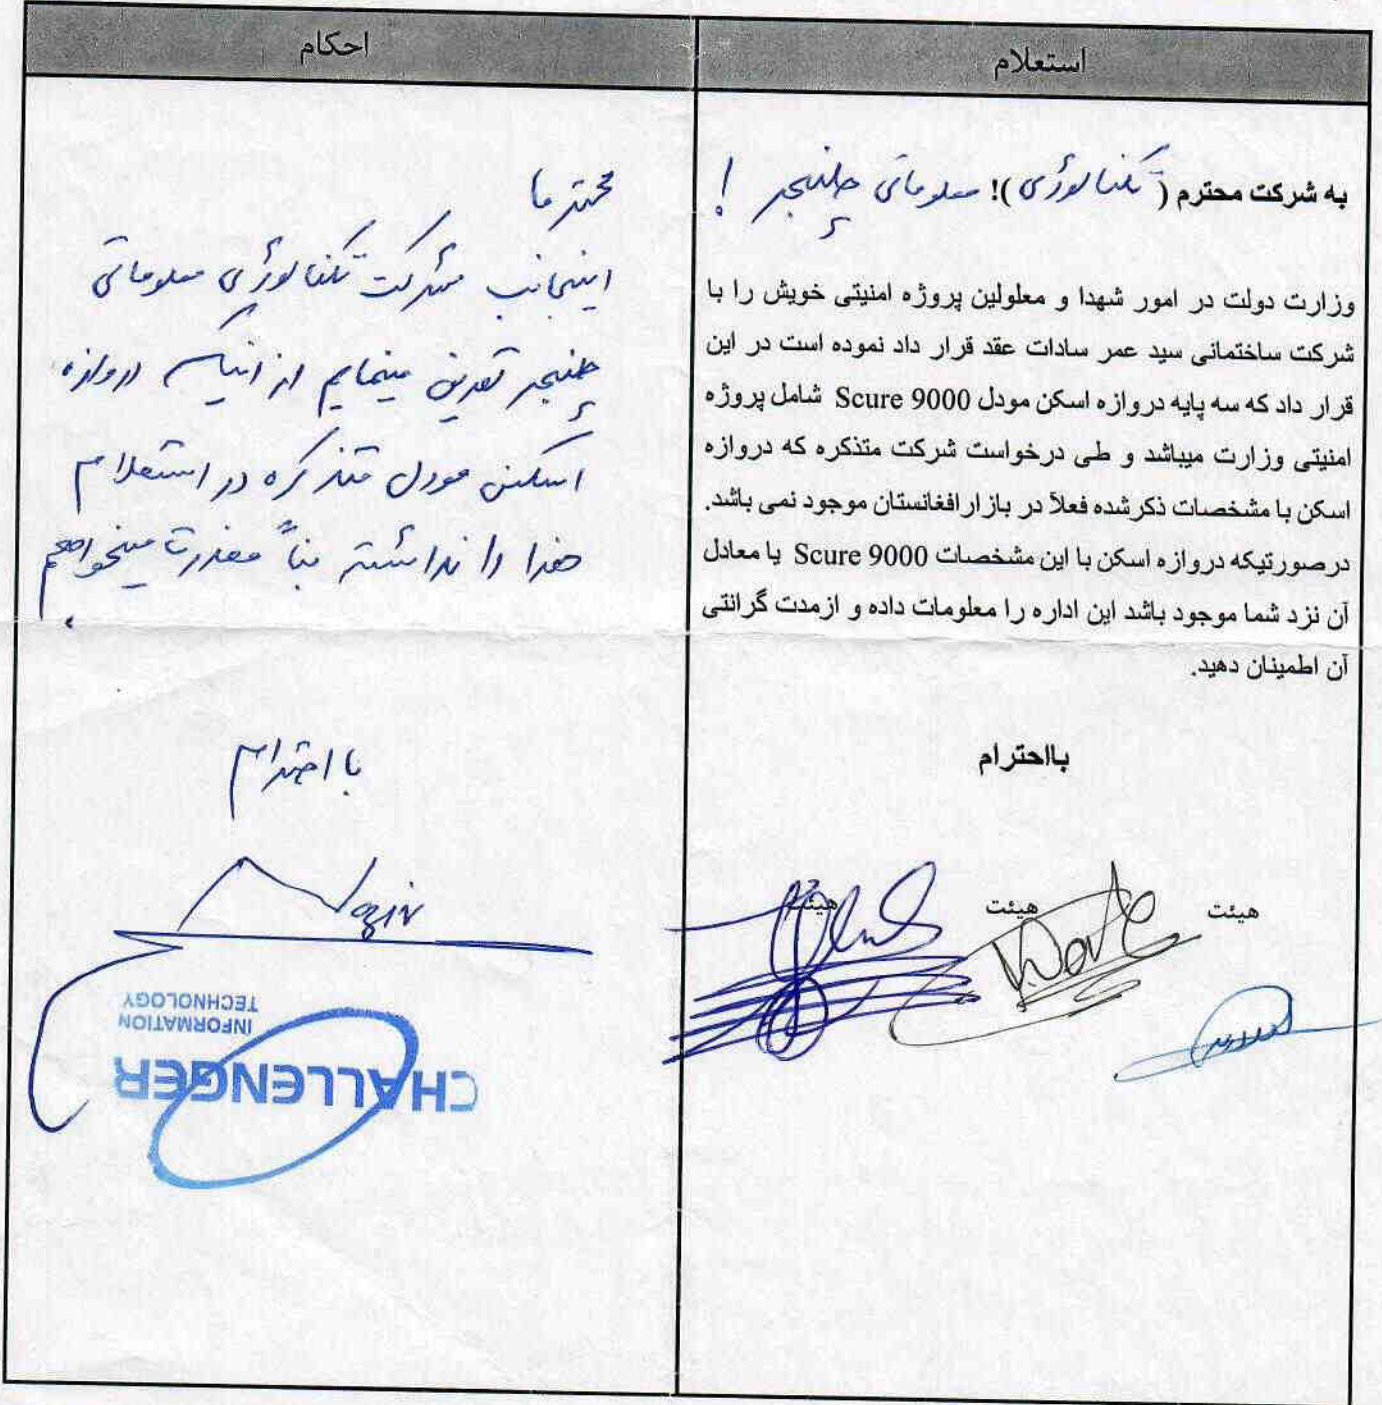 استعلام
به شرکت محترم (تکنالوژی)! معلوماتی چلنیجر !
وزارت دولت در امور شهدا و معلولین پروژه امنیتی خویش را با
شرکت ساختمانی سید عمر سادات عقد قرار داد نموده است در این
قرار داد که سه پایه دروازه اسکن مودل Scure 9000 شامل پروژه
امنیتی وزارت میباشد و طی درخواست شرکت متذکره که دروازه
اسکن با مشخصات ذکرشده فعلاً در بازارافغانستان موجود نمی باشد.
درصورتیکه دروازه اسکن با این مشخصات Scure 9000 یا معادل
آن نزد شما موجود باشد این اداره را معلومات داده و ازمدت گرانتی
آن اطمینان دهید.
بااحترام
هیئت هیئت هیئت
احکام
محترما
اینجانب شرکت تکنالوژی معلوماتی
چلنیجر مینمایم از دروازه
اسکن مودل متذکره در استعلام
هذا را نداشته بناً معذرت میخواهم
با احترام
CHALLENGER
INFORMATION
TECHNOLOGY